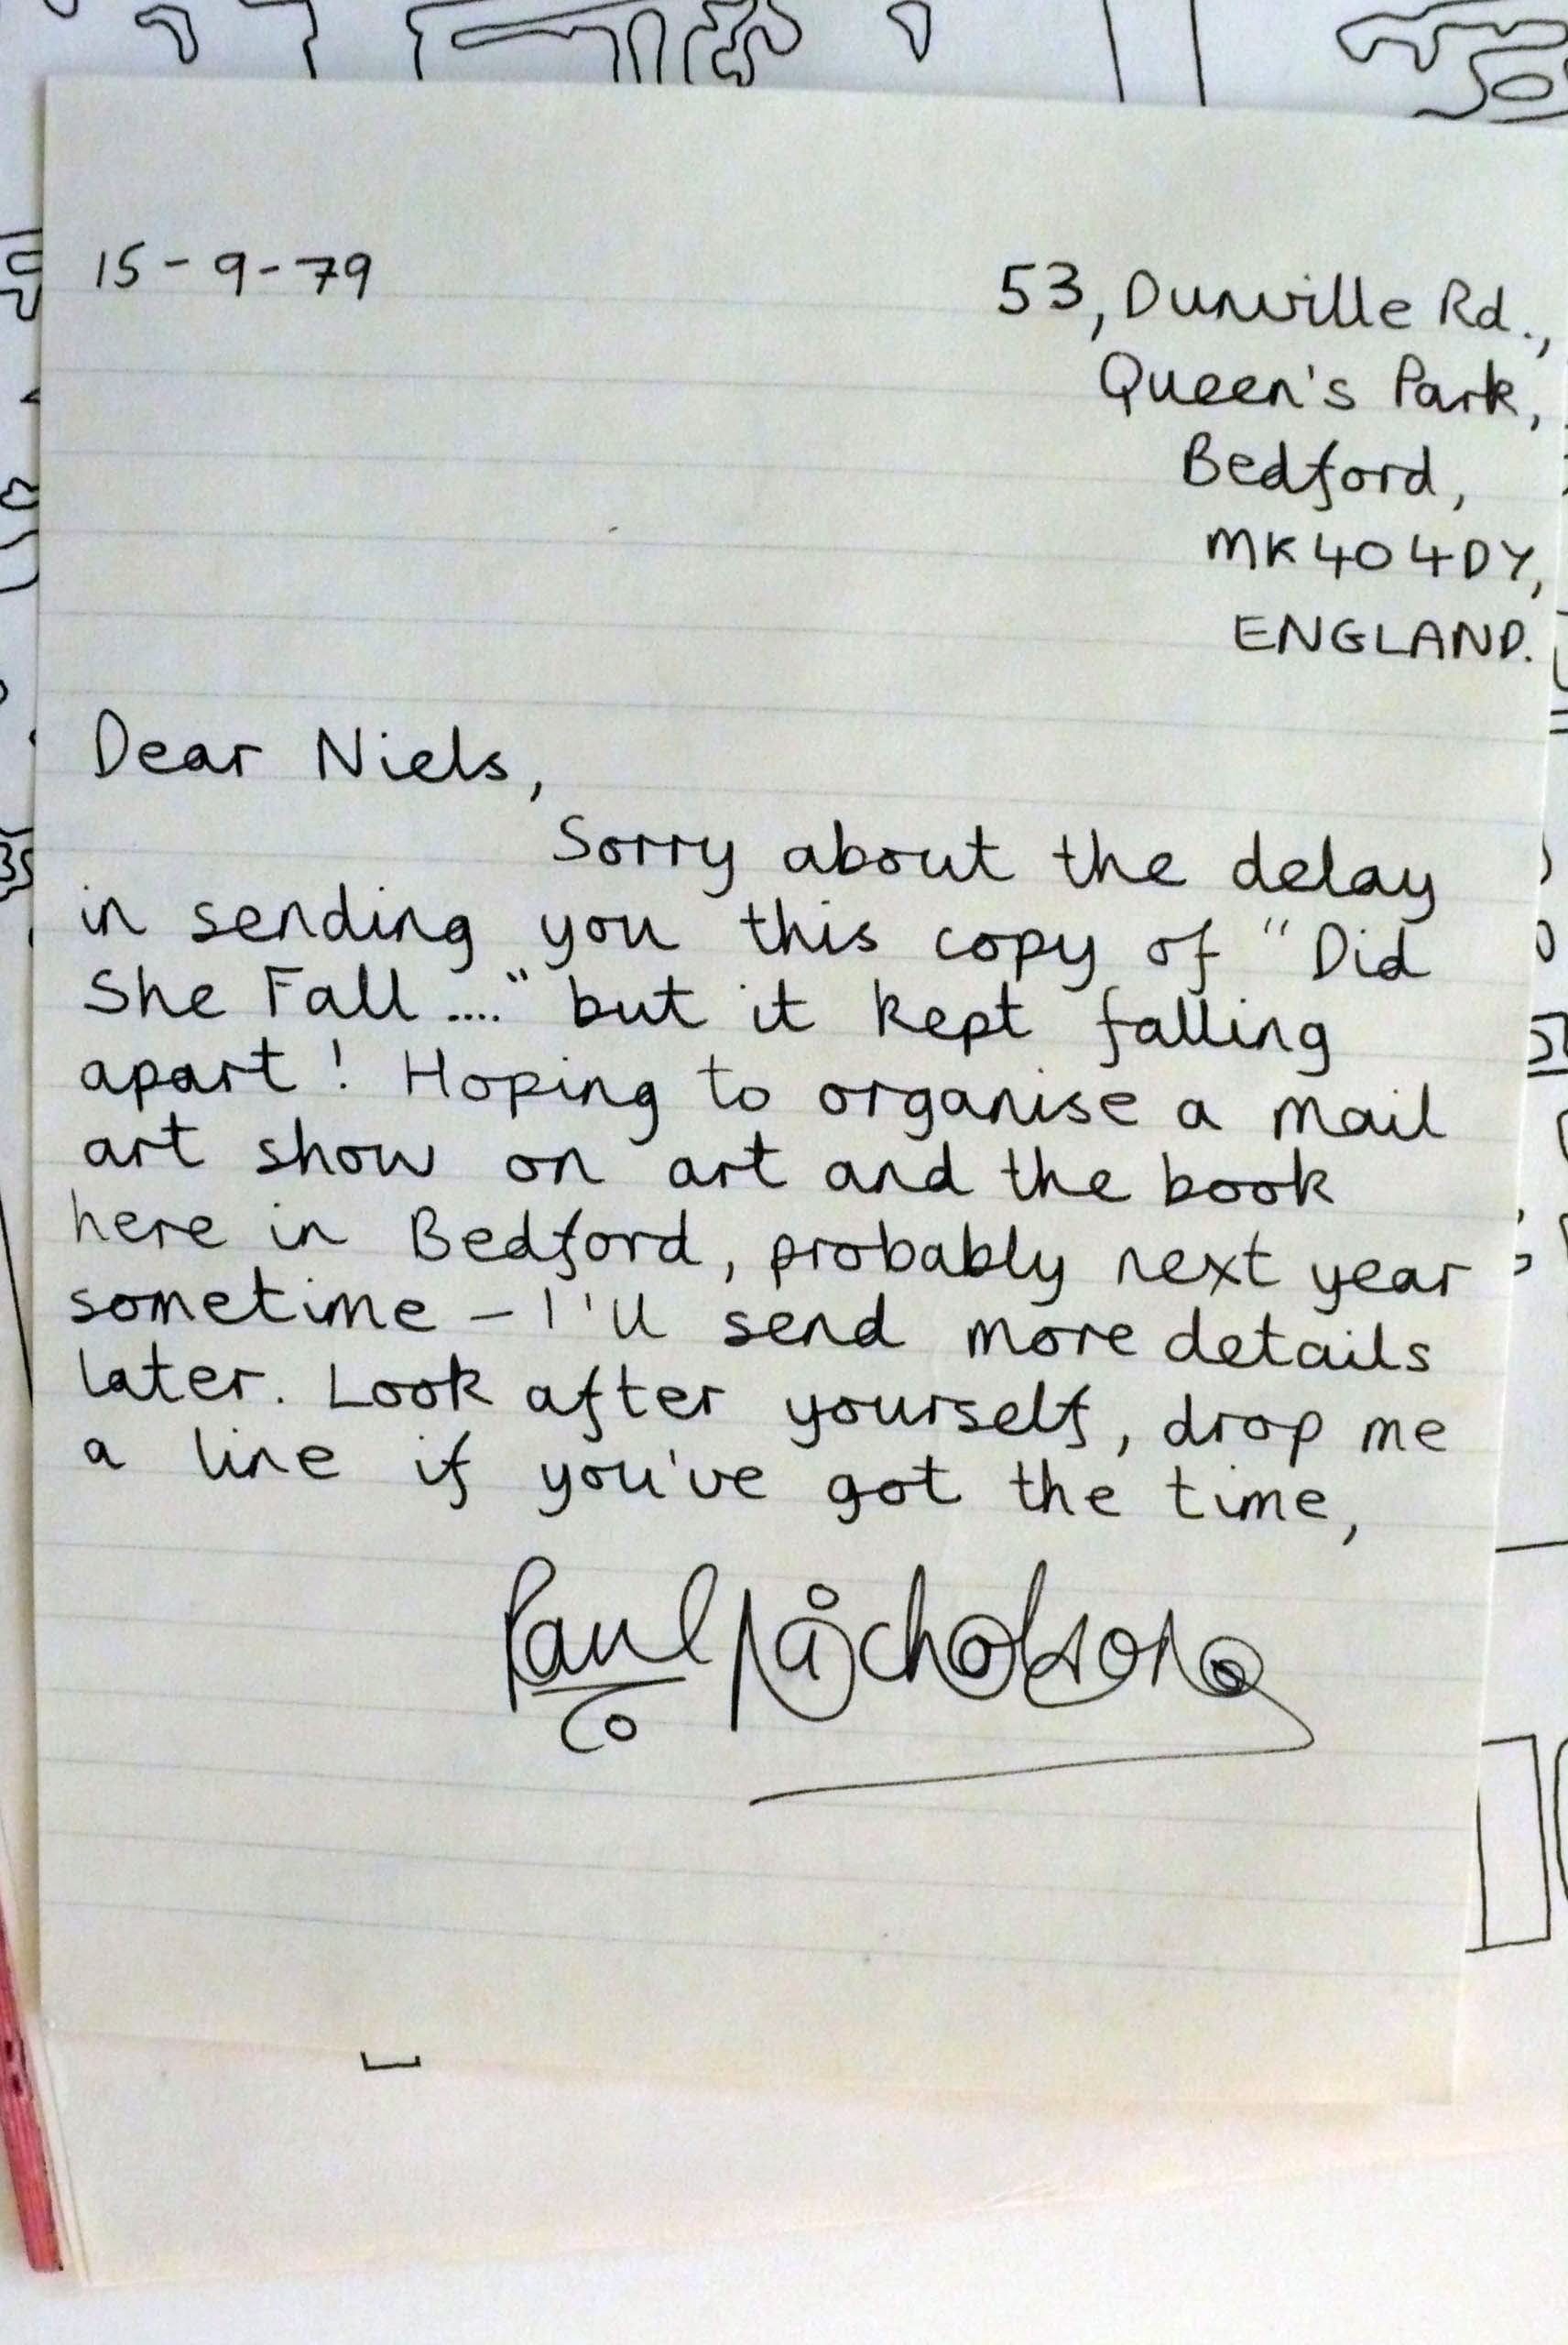 15-9-79
53, Dunville Rd.,
Queen's Park,
Bedford,
MK40 4DY,
ENGLAND.
Dear Niels,
Sorry about the delay
in sending you this copy of "Did
She Fall...." but it kept falling
apart! Hoping to organise a mail
art show on art and the book
here in Bedford, probably next year
sometime - I'll send more details
later. Look after yourself, drop me
a line if you've got the time,
Paul Nicholson